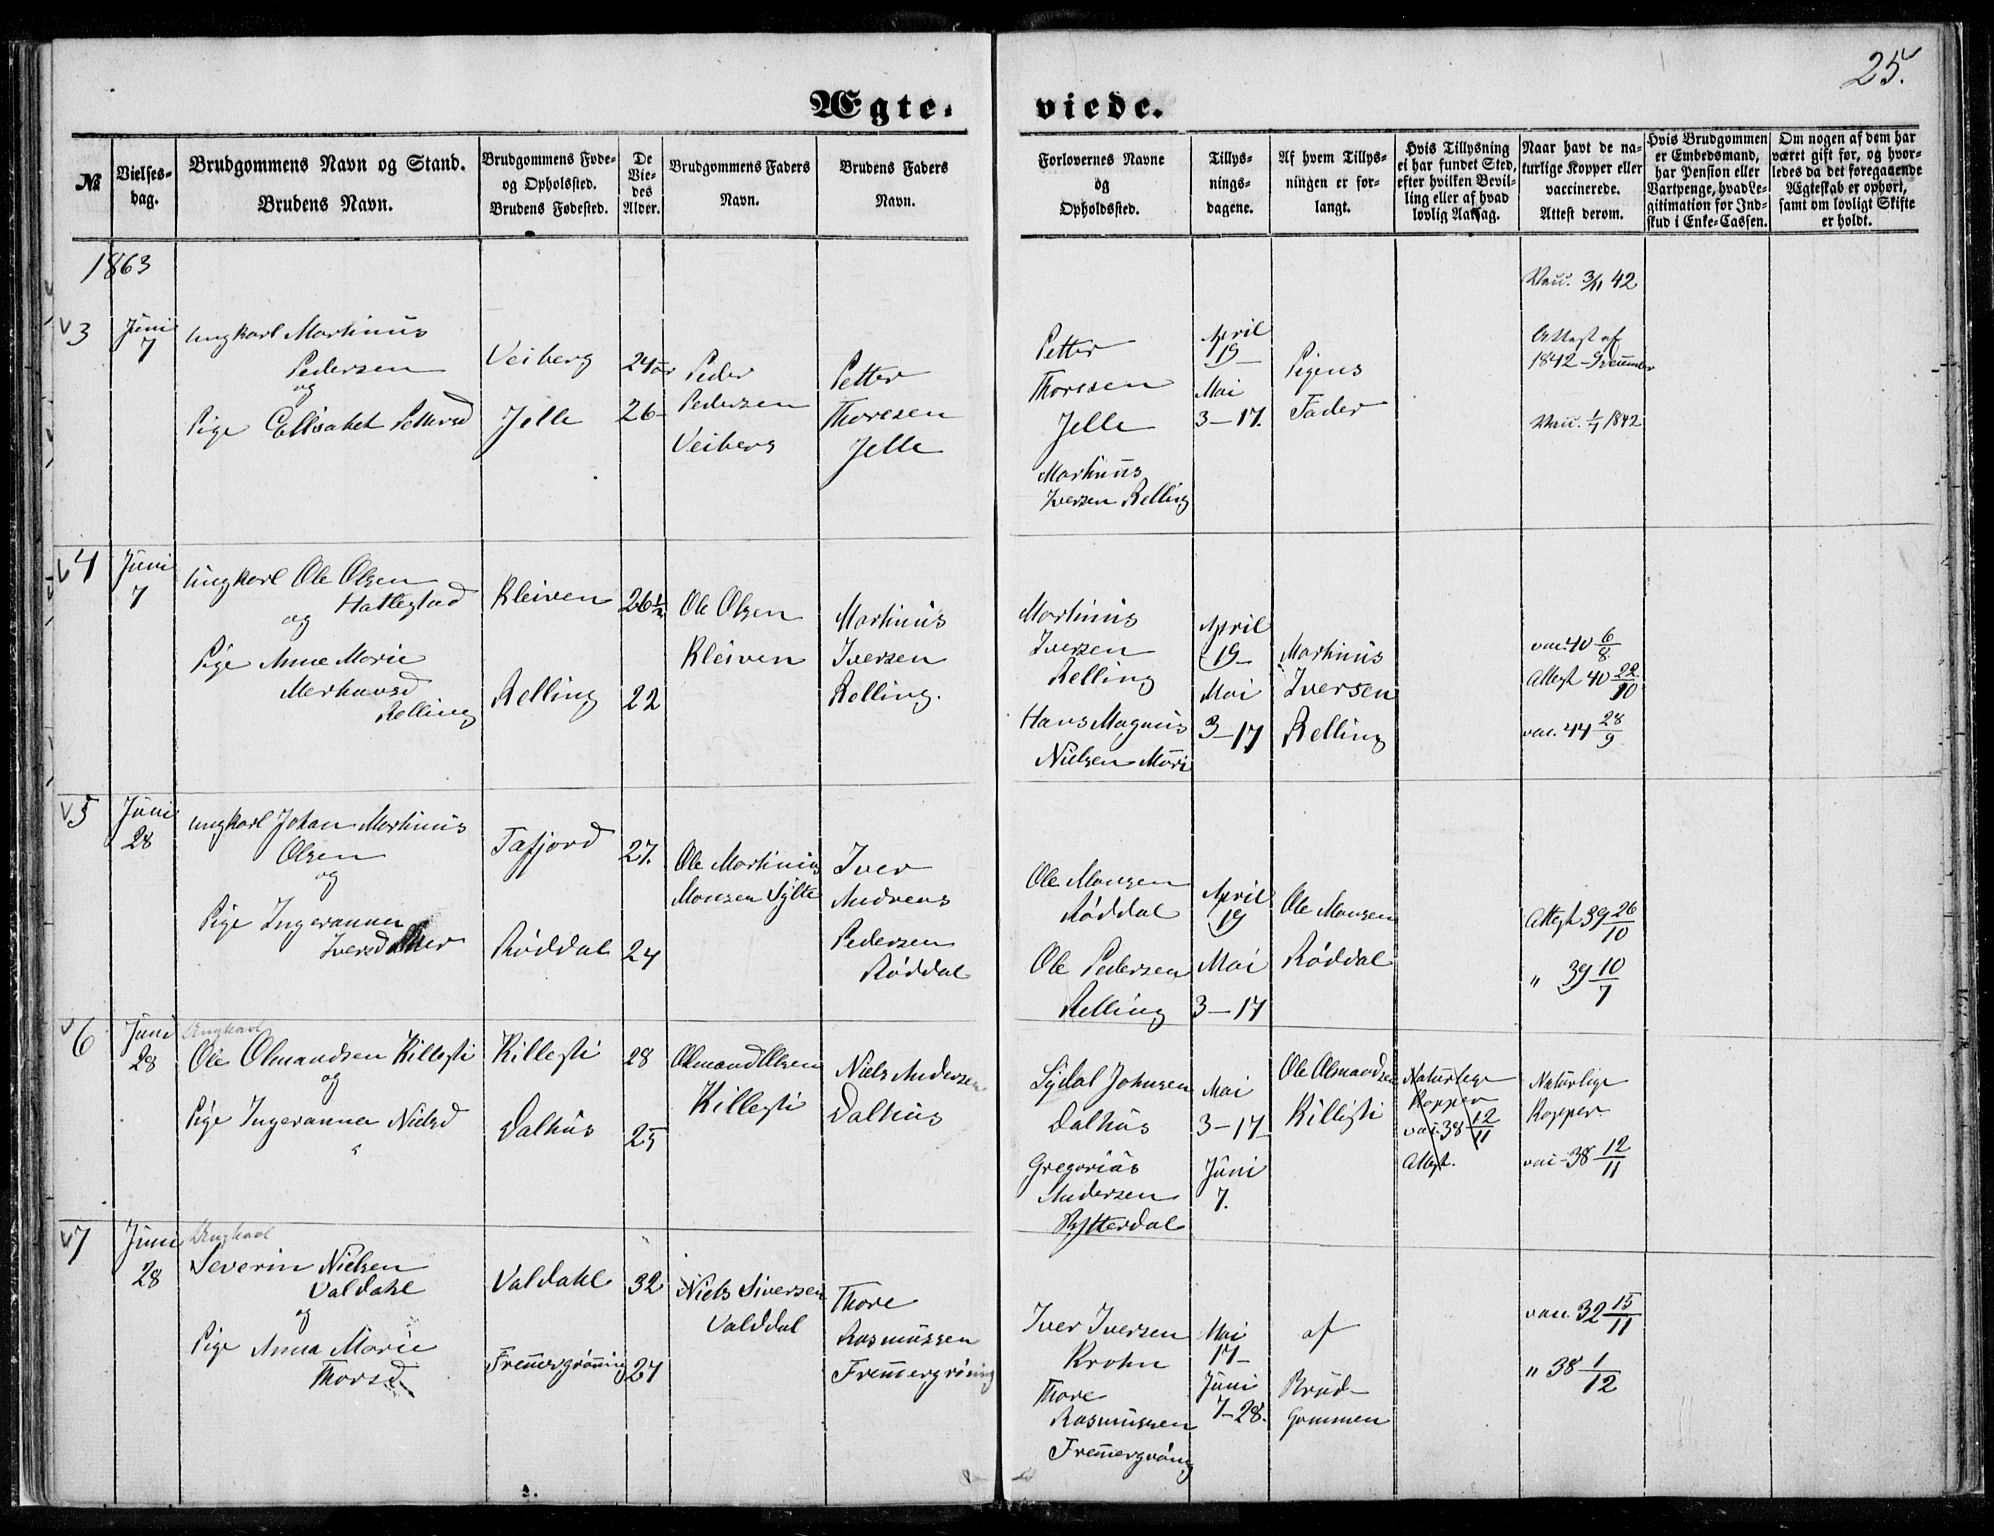 25.
Ægte- viede.
№
Vielses-
dag.
Brudgommens Navn og Stand.
Brudens Navn.
Brudgommens Føde-
og Opholdssted.
Brudens Fødested.
De
Vie-
des
Alder.
Brudgommens Faders
Navn.
Brudens Faders
Navn.
Forlovernes Navne
og
Opholdssted.
Tillys-
nings-
dagene.
Af hvem Tillys-
ningen er for-
langt.
Hvis Tillysning
ei har fundet Sted,
efter hvilken Bevil-
ling eller af hvad
lovlig Aarsag.
Naar havt de na-
turlige Kopper eller
vaccinerede.
Attest derom.
Hvis Brudgommen
er Embedsmand,
har Pension eller
Vartpenge, hvad Le-
gitimation for Ind-
skud i Enke-Cassen.
Om nogen af dem har
været gift før, og hvor-
ledes da det foregaaende
Ægteskab er ophørt,
samt om lovligt Skifte
er holdt.
1863
3
Juni
7
ungkarl Martinus
Pedersen
og
Pige Elisabet Pettersd
Veiberg
Jelle
24 aar
26-
Peder
Pedersen
Veiberg
Petter
Thoresen
Jelle
Petter
Thoresen
Jelle
Martinus
Iversen Relling
April
19-
Mai
3-17.
Pigens
Fader
Vacc. 3/11 42
Attest af
1842
Vacc. 1/7 1842
4
Juni
7
ungkarl Ole Olsen
Hattestad
og
Pige Anne Marie
Relling
Kleiven
Relling
26½
22
Ole Olsen
Kleiven
Martinus
Iversen
Relling.
Martinus
Iversen
Relling
Hans Magnus
Nielsen Muri
April
19-
Mai
3-17
Martinus
Iversen
Relling
vac. 40 6/8
Attest 40 22/10
vac. 44 28/9
5
Juni
28
ungkarl Johan Martinus
Olsen
og
Pige Ingeranna
Iversdatter
Tafjord
Røddal
27.
24
Ole Martinus
Monsen Sylte
Iver
Andreas
Pedersen
Røddal
Ole Monsen
Røddal
Ole Pedersen
Relling
April
19
Mai
3-17
Ole Monsen
Røddal
Attest 39 26/10
" 39 10/7
6
Juni
28
Ungkarl
Ole Olmandsen Killesti
og
Pige Ingeranna Nielsd
Killesti
Dalhus
28
25
Olmand Olsen
Killesti
Niels Andersen
Dalhus
Sjdal Johnsen
Dalhus
Gregorius
Andersen
Rytterdal
Mai
3-17-
Juni
7.
Ole Olmandsen
Killesti
Naturlige
Kopper
vac. 38 12/11
Attest.
Naturlige
Kopper
vac. 38 12/11
7
Juni
28
Ungkarl
Severin Nielsen
Valdahl
og
Pige Anna Marie
Thorsd
Valdahl
Fremmergrøning
32
27
Niels Siversen
Valddal
Thore
Rasmussen
Fremmergrøning
Iver Iversen
Krohn
Thore
Rasmussen
Fremmergrøng
Mai
17-
Juni
7-28.
af
Brud-
gommen
vac. 32 15/11
" 38 1/12